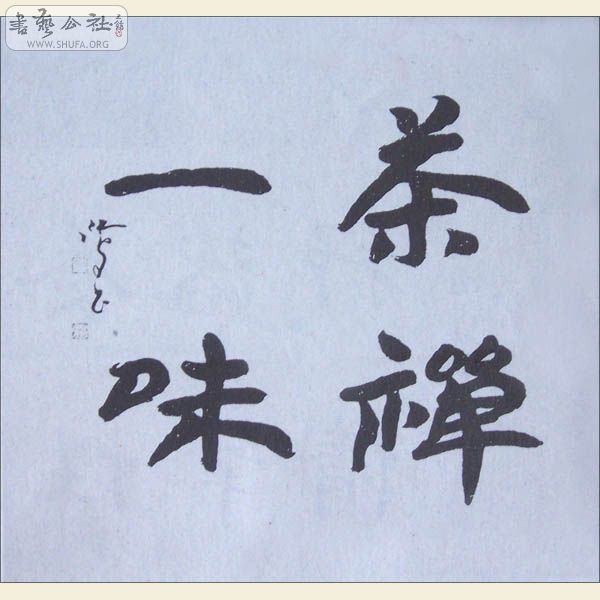 茶禪
一味
書藝公社
WWW.SHUFA.ORG